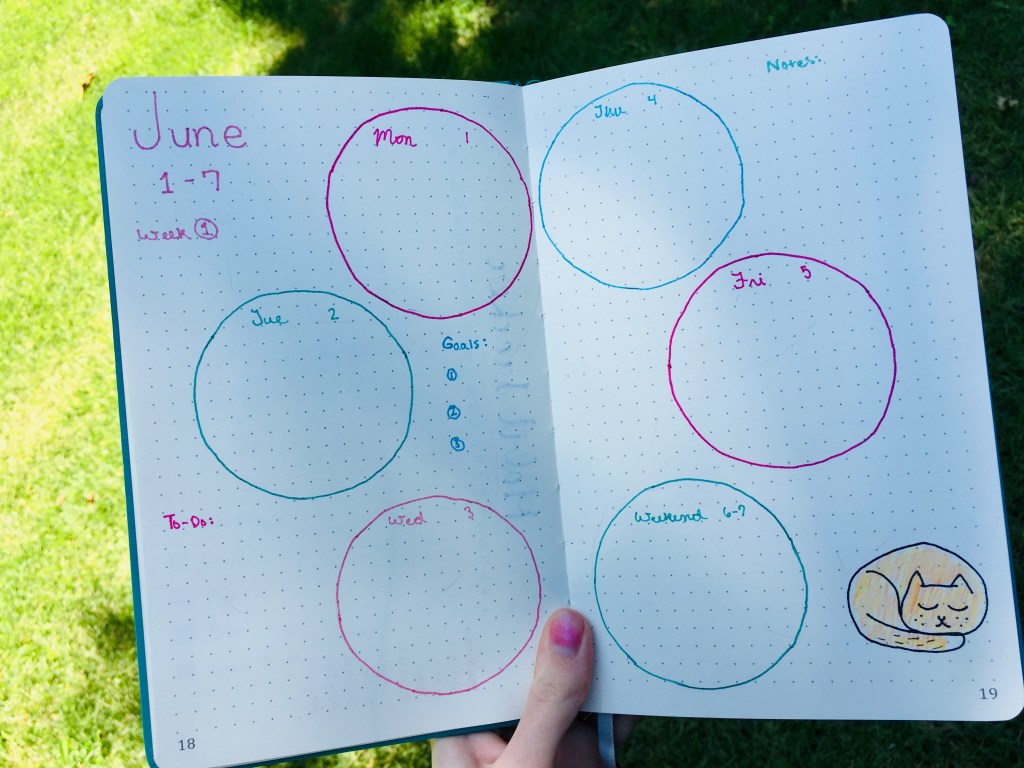 June
1-7
Week 1
Mon 1
Tue 2
Goals:
1
2
3
To-Do:
Wed 3
18
Thu 4
Notes:
Fri 5
Weekend 6-7
19